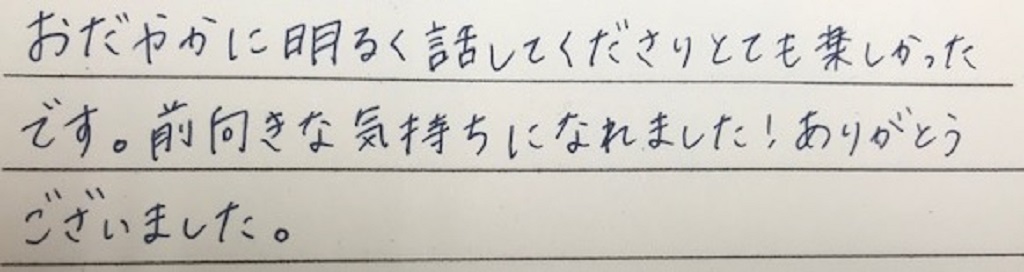 おだやかに明るく話してくださりとても楽しかった
です。前向きな気持ちになれました！ありがとう
ございました。